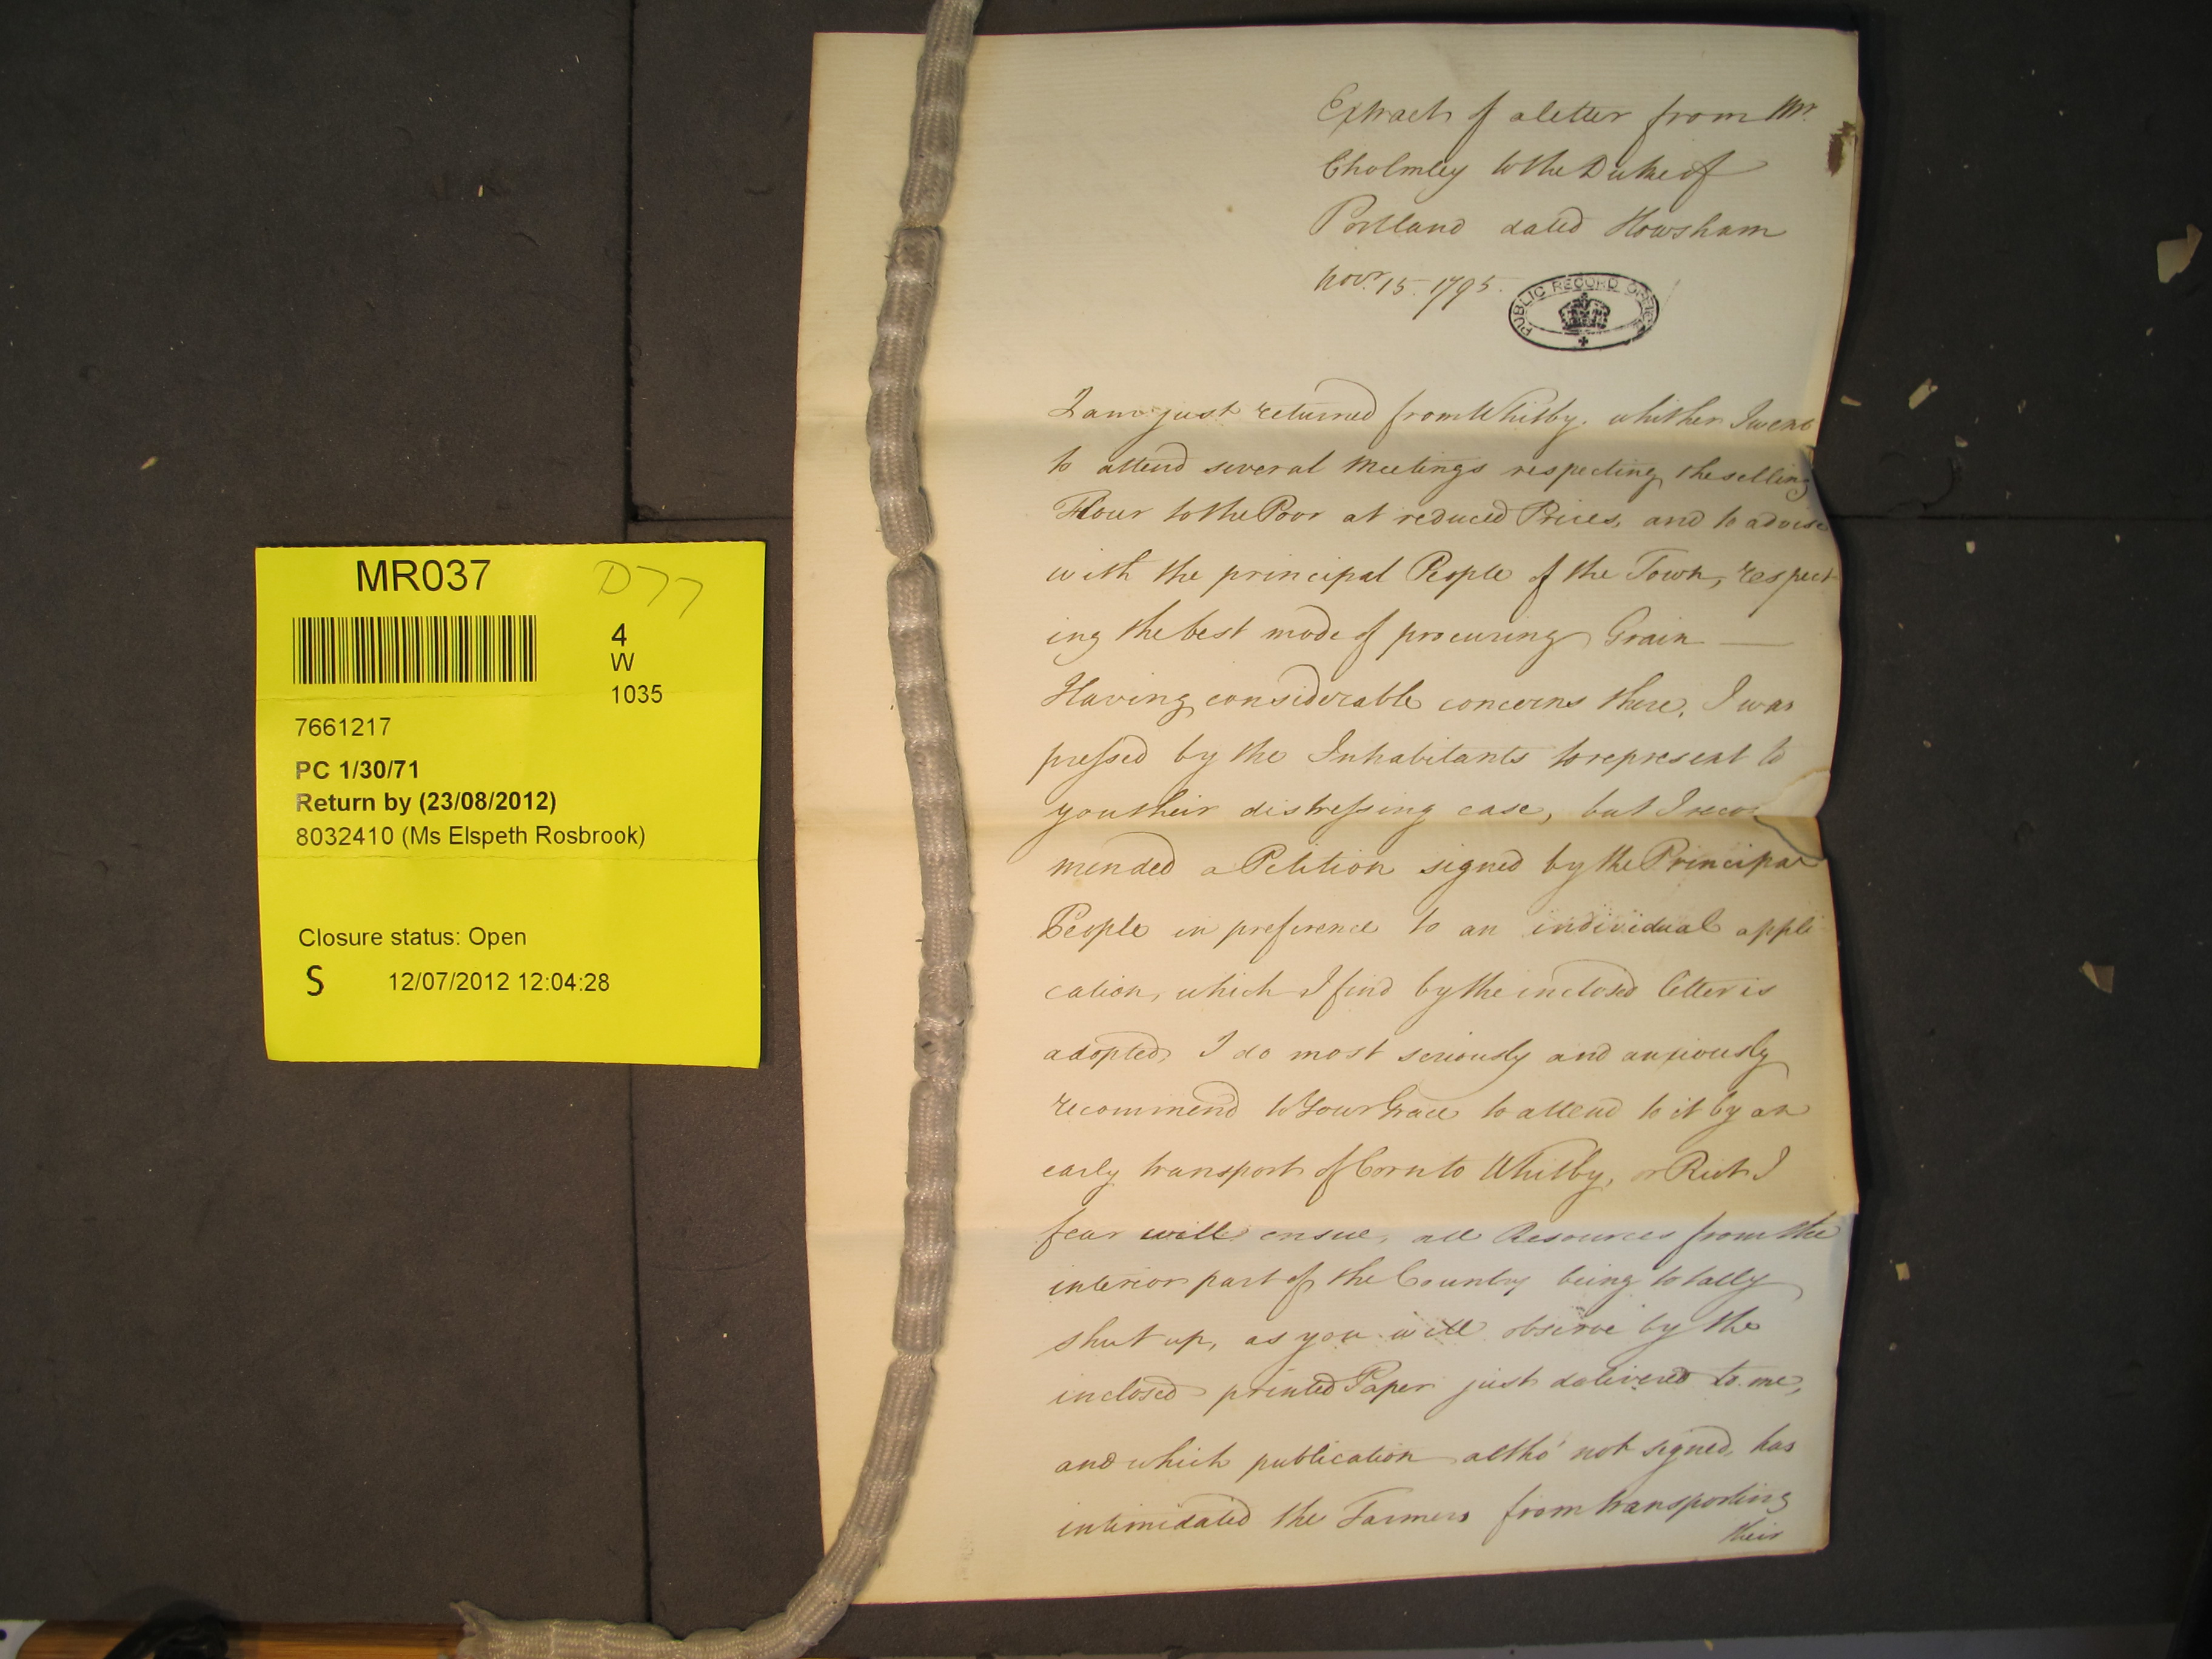 MR037
D77
4
W
1035
7661217
PC 1/30/71
Return by (23/08/2012)
8032410 (Ms Elspeth Rosbrook)
Closure status: Open
S 12/07/2012 12:04:28
Extract of a letter from Mr.
Cholmley to the Duke of
Portland dated Howsham
Novr. 15. 1795.
PUBLIC RECORD OFFICE
I am just returned from Whitby, whither I went
to attend several Meetings respecting the selling
Flour to the Poor at reduced Prices, and to advise
with the principal People of the Town, respect
ing the best mode of procuring Grain —
Having considerable concerns there, I was
pressed by the Inhabitants to represent to
you their distressing case, but I recom
mended a Petition signed by the Principal
People in preference to an individual appli
cation, which I find by the inclosed letter is
adopted, I do most seriously and anxiously
recommend to Your Grace to attend to it by an
early transport of Corn to Whitby, or Riot I
fear will ensue, all Resources from the
interior part of the Country being totally
shut up, as you will observe by the
inclosed printed Paper just delivered to me,
and which publication altho' not signed, has
intimidated the Farmers from transporting
their